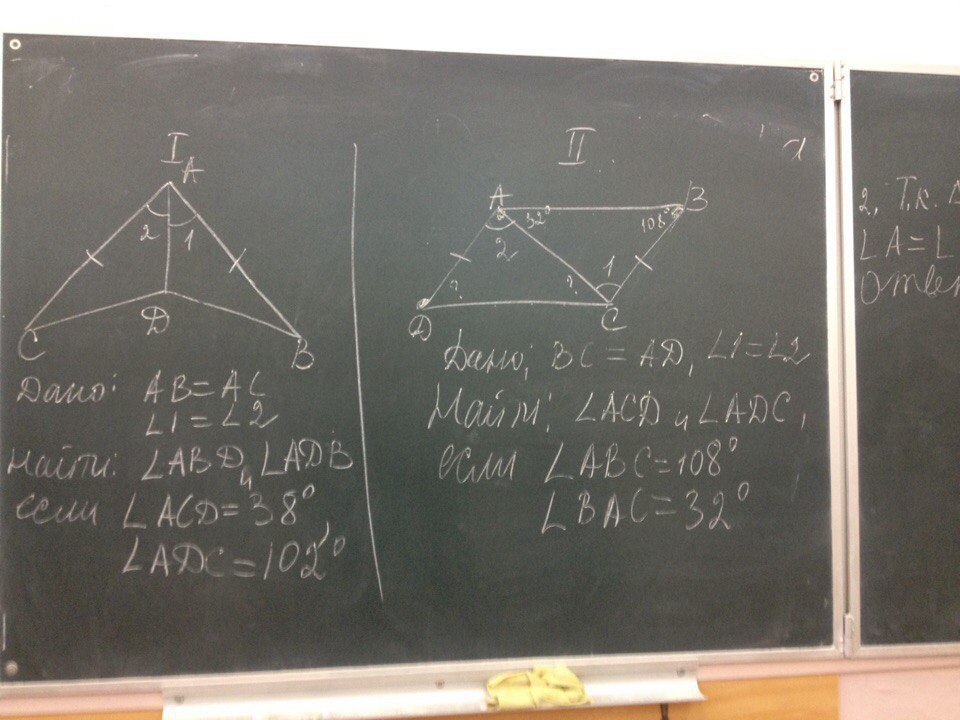 I
A
2 1
D
C
B
Дано: AB = AC
∠1 = ∠2
Найти: ∠ABD и ∠ADB
если ∠ACD = 38°
∠ADC = 102°
II
A
B
32°
108°
2
1
?
?
D
C
Дано; BC = AD, ∠1 = ∠2
Найти: ∠ACD и ∠ADC,
если ∠ABC = 108°
∠BAC = 32°
2, Т.к.
∠A = ∠
Ответ